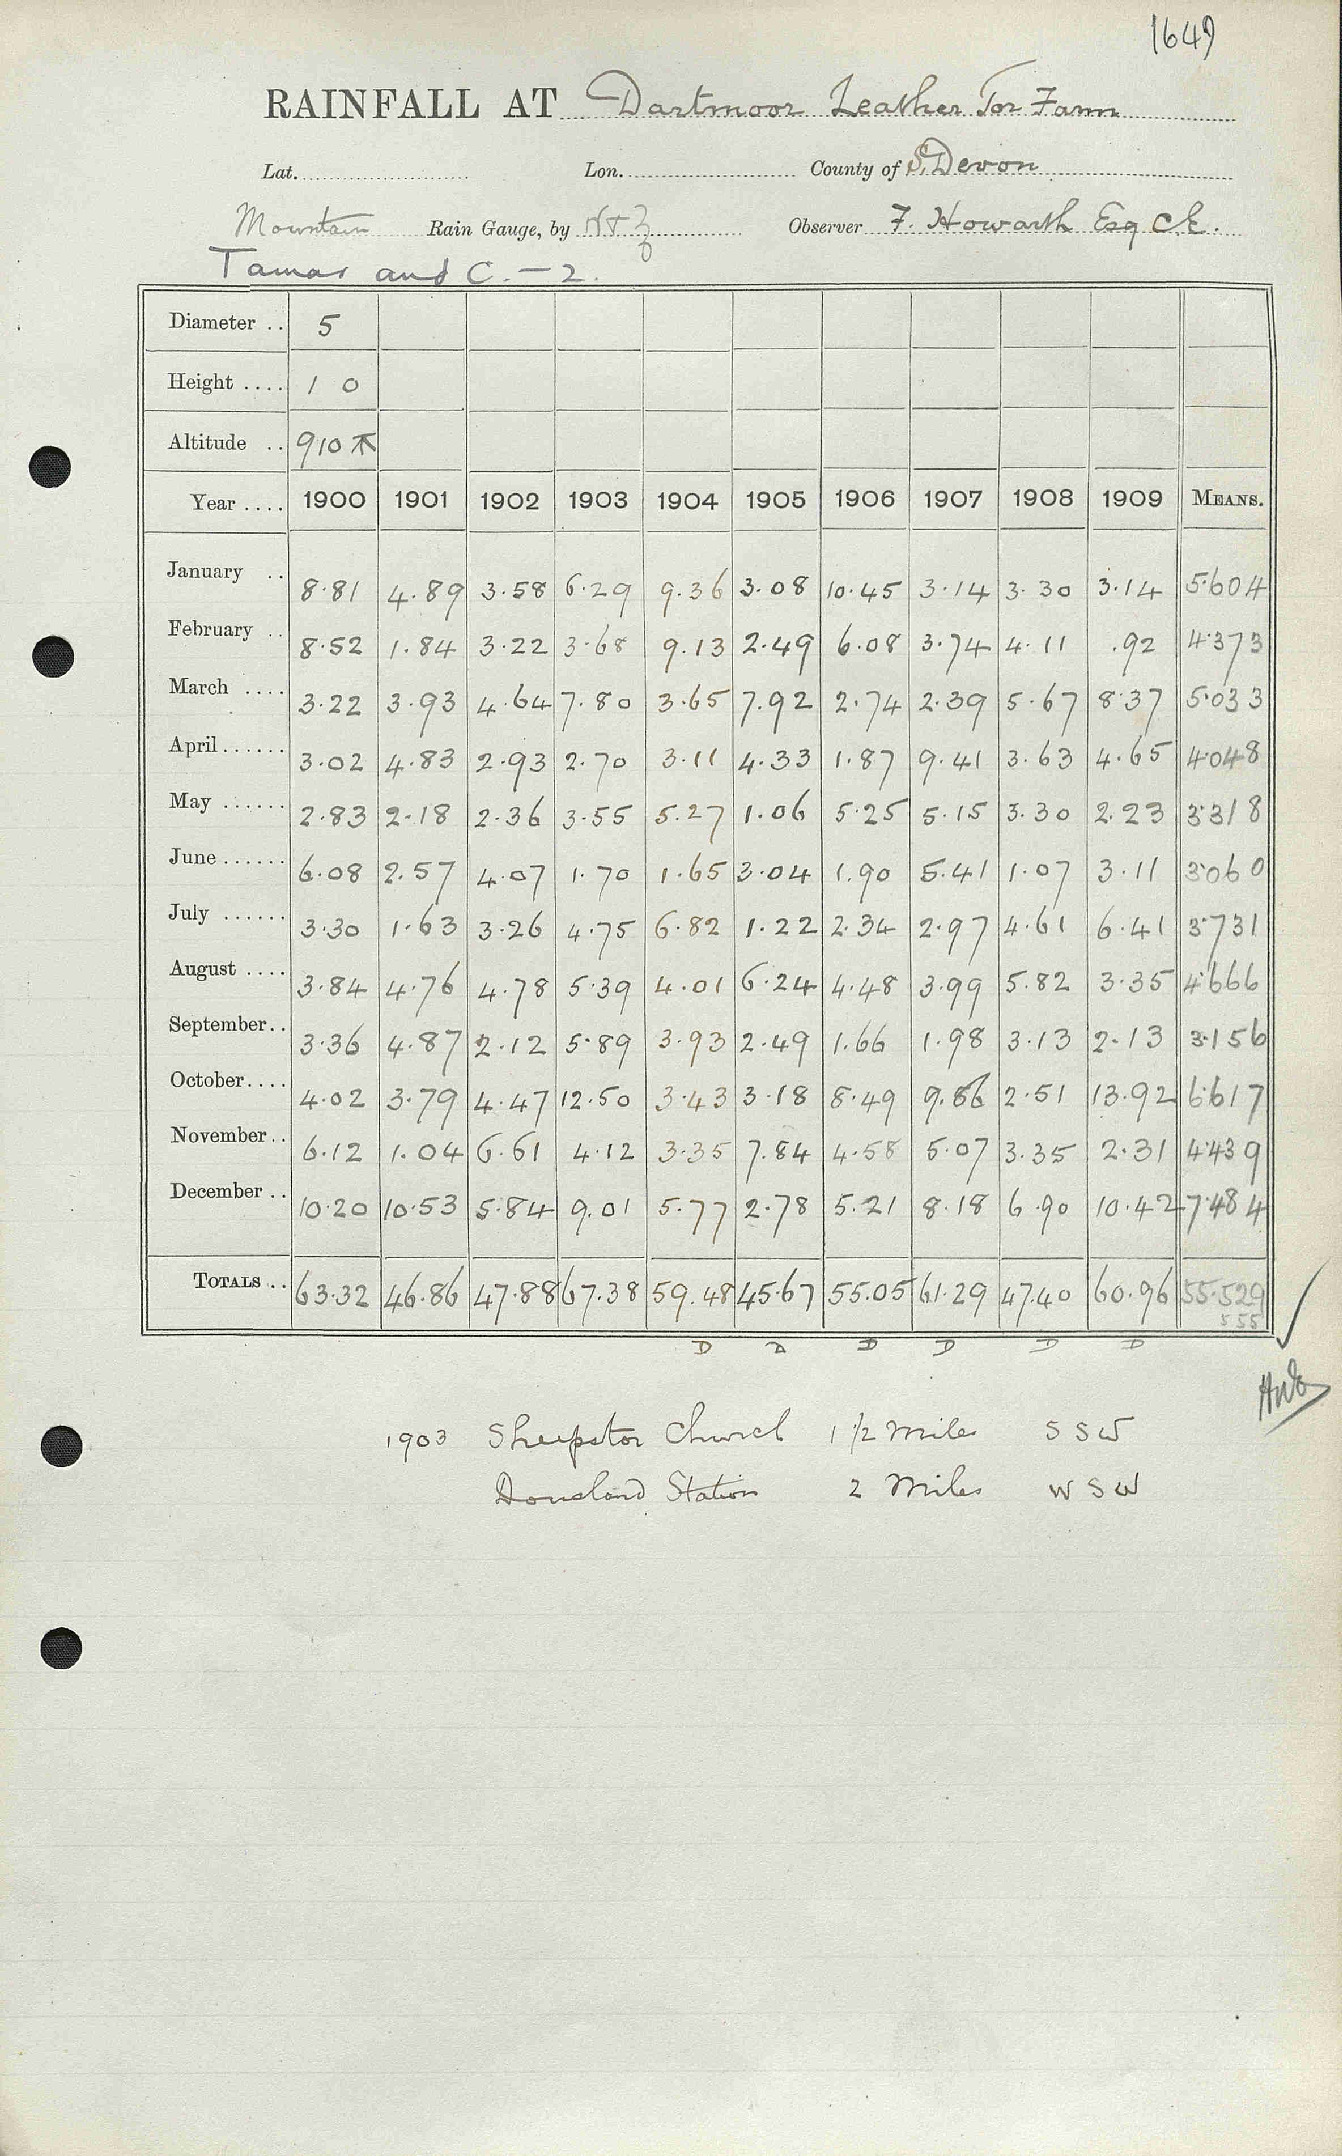 1649
RAINFALL AT Dartmoor Leather Tor Farm
Lat. Lon. County of S. Devon
Mountain Rain Gauge, by N & Z Observer F. Howarth Esq C.E.
Tamar and C. — 2.
Diameter .. 5
Height .... 1 0
Altitude .. 910
Year .... 1900 1901 1902 1903 1904 1905 1906 1907 1908 1909 MEANS.
January .. 8.81 4.89 3.58 6.29 9.36 3.08 10.45 3.14 3.30 3.14 5.604
February .. 8.52 1.84 3.22 3.68 9.13 2.49 6.08 3.74 4.11 .92 4.373
March .... 3.22 3.93 4.64 7.80 3.65 7.92 2.74 2.39 5.67 8.37 5.033
April ...... 3.02 4.83 2.93 2.70 3.11 4.33 1.87 9.41 3.63 4.65 4.048
May ...... 2.83 2.18 2.36 3.55 5.27 1.06 5.25 5.15 3.30 2.23 3.318
June ...... 6.08 2.57 4.07 1.70 1.65 3.04 1.90 5.41 1.07 3.11 3.060
July ...... 3.30 1.63 3.26 4.75 6.82 1.22 2.34 2.97 4.61 6.41 3.731
August .... 3.84 4.76 4.78 5.39 4.01 6.24 4.48 3.99 5.82 3.35 4.666
September.. 3.36 4.87 2.12 5.89 3.93 2.49 1.66 1.98 3.13 2.13 3.156
October.... 4.02 3.79 4.47 12.50 3.43 3.18 8.49 9.86 2.51 13.92 6.617
November.. 6.12 1.04 6.61 4.12 3.35 7.84 4.58 5.07 3.35 2.31 4.439
December .. 10.20 10.53 5.84 9.01 5.77 2.78 5.21 8.18 6.90 10.42 7.484
TOTALS .. 63.32 46.86 47.88 67.38 59.48 45.67 55.05 61.29 47.40 60.96 55.529
555
D D D D D D
1903 Sheepstor Church 1 1/2 Miles S S W
Dousland Station 2 Miles W S W